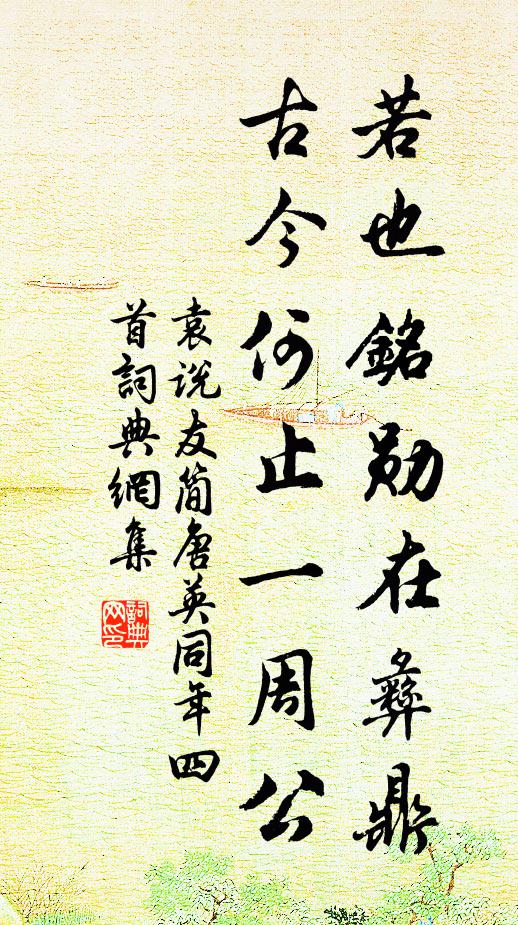 若也銘勛在彝鼎
古今何止一周公
袁说友简唐英同年四
首詞典網集
詞典
网印